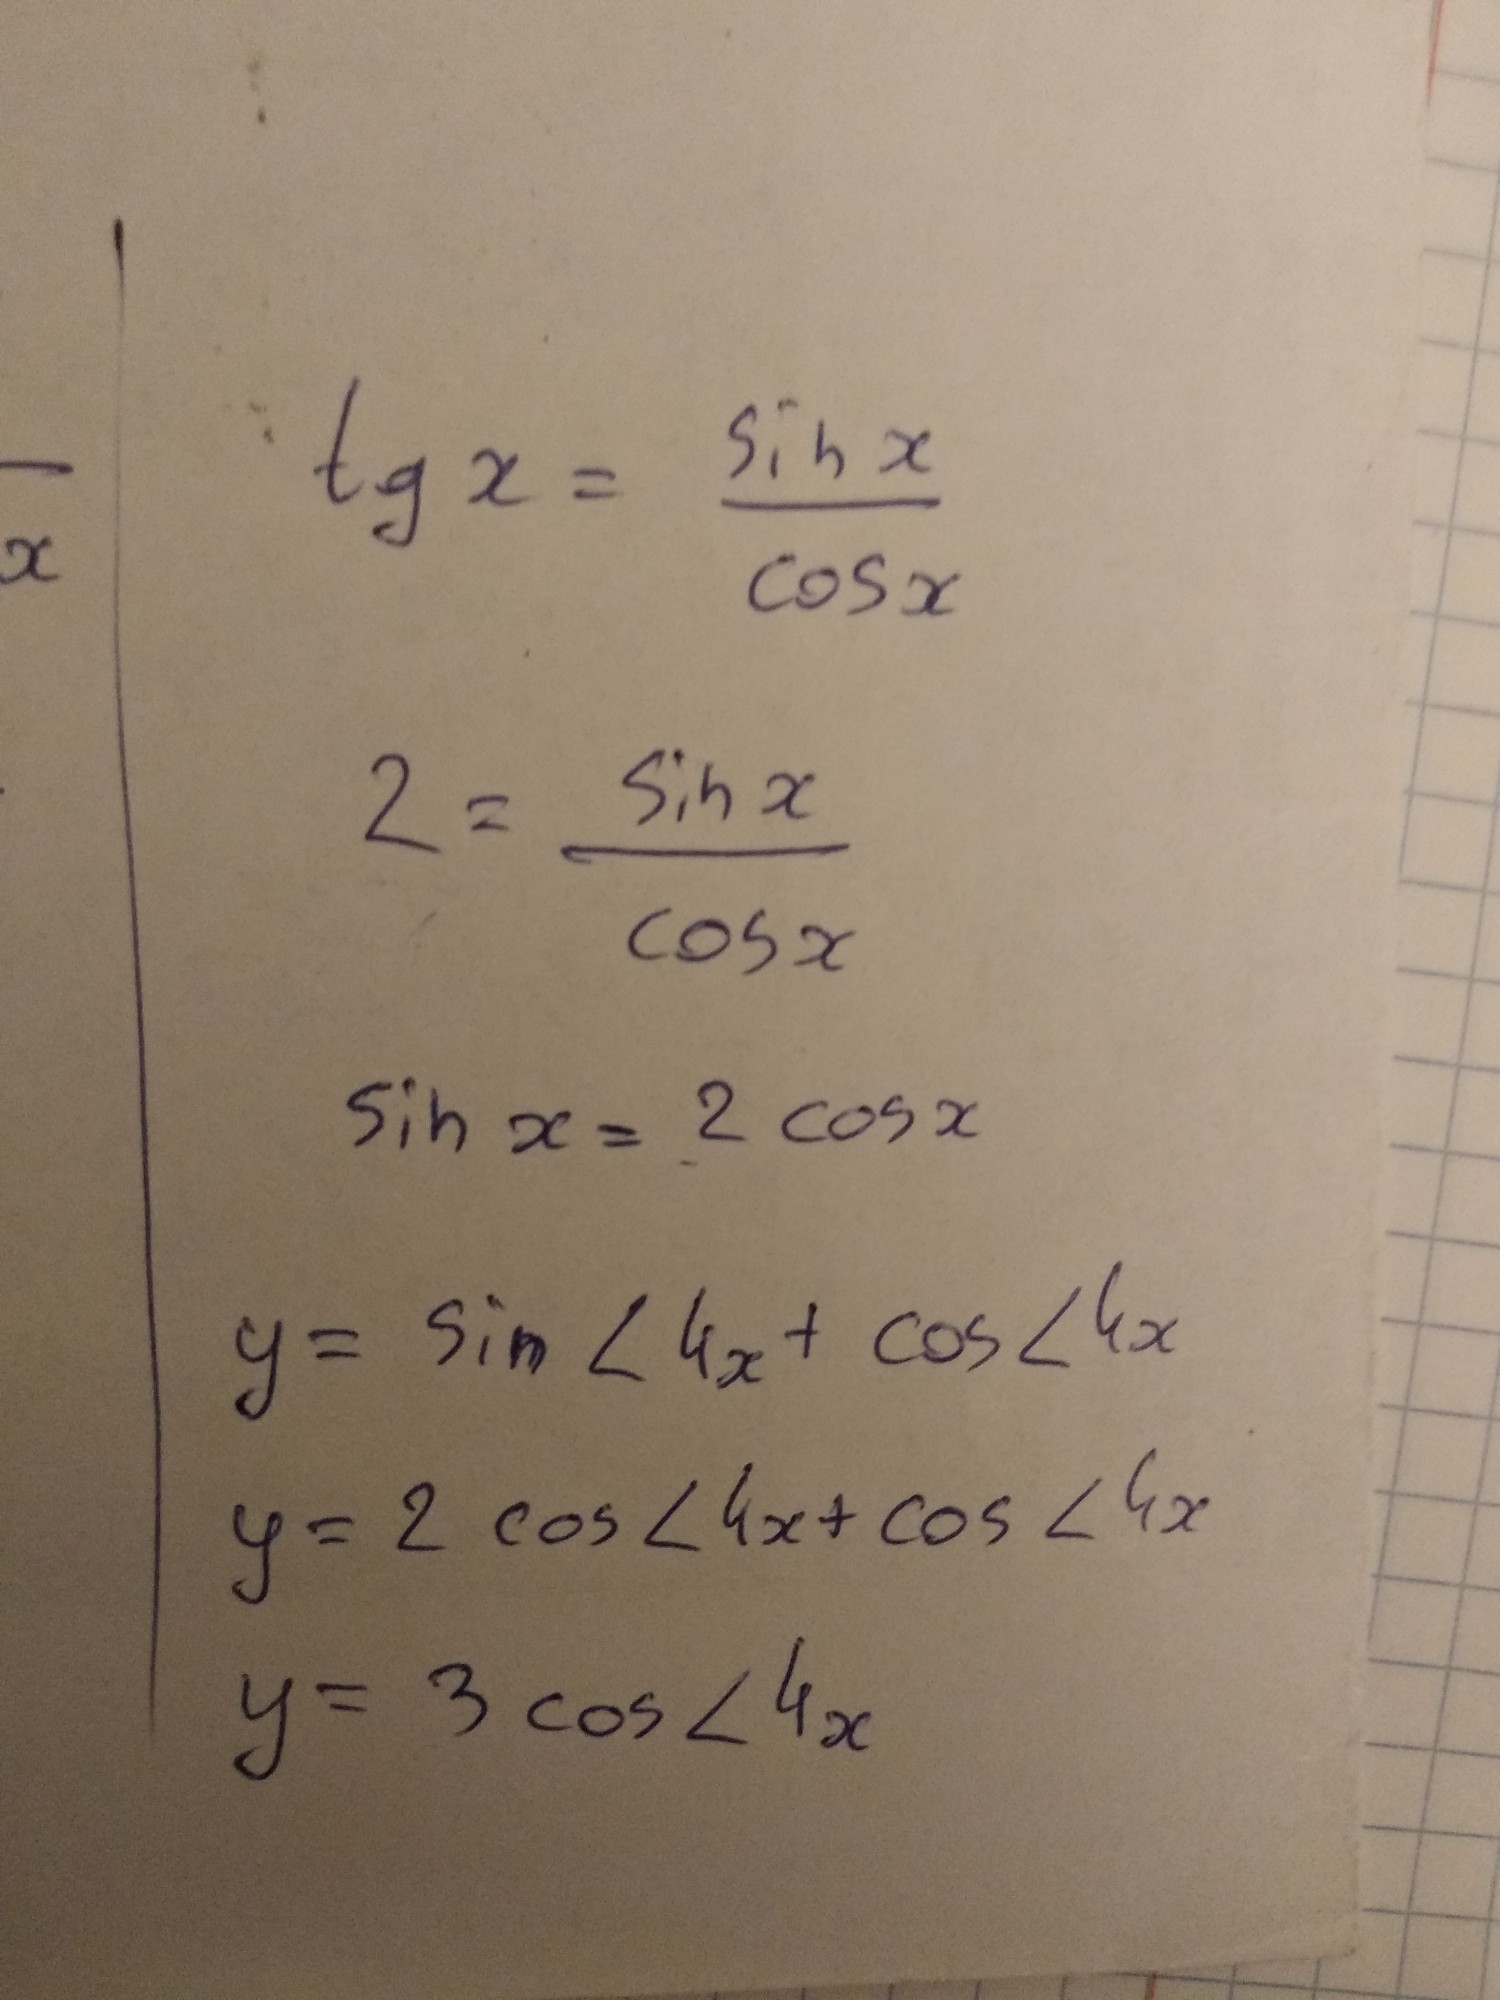 x
tg x = sin x / cos x
2 = sin x / cos x
sin x = 2 cos x
y = sin ∠ 4x + cos ∠ 4x
y = 2 cos ∠ 4x + cos ∠ 4x
y = 3 cos ∠ 4x